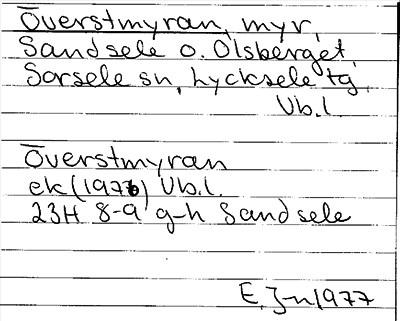 Överstmyran, myr,
Sandsele o. Olsberget,
Sorsele sn, Lycksele tg,
Vb.l.
Överstmyran
ek (1976) Vb.l.
23H 8-9 g-h Sandsele
E. J-n 1977